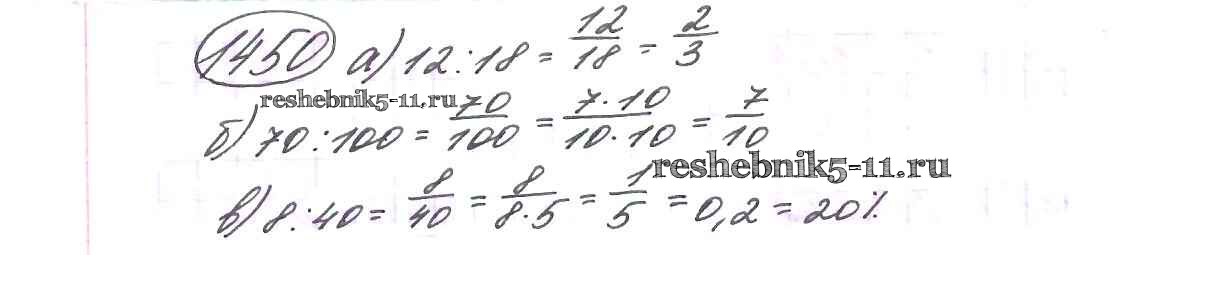 1450 а) 12:18 = 12/18 = 2/3
reshebnik5-11.ru
б) 70:100 = 70/100 = 7·10/10·10 = 7/10
reshebnik5-11.ru
в) 8:40 = 8/40 = 8/8·5 = 1/5 = 0,2 = 20%.